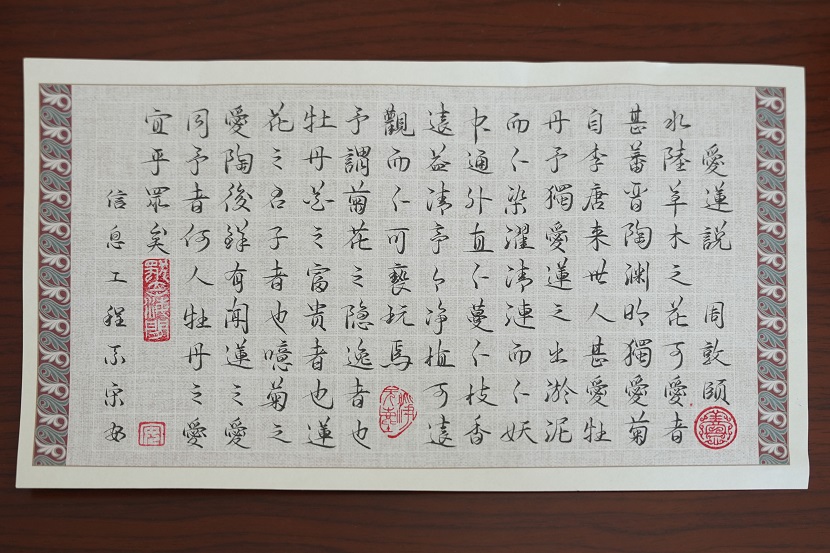 愛蓮説 周敦頤
水陸草木之花可愛者
甚蕃晋陶渊明獨愛菊
自李唐来世人甚愛牡
丹予獨愛蓮之出淤泥
而不染濯清漣而不妖
中通外直不蔓不枝香
遠益清亭亭净植可遠
觀而不可褻玩焉
予謂菊花之隐逸者也
牡丹花之富貴者也蓮
花之君子者也噫菊之
愛陶後鮮有聞蓮之愛
同予者何人牡丹之愛
宜乎眾矣
信息工程系宋